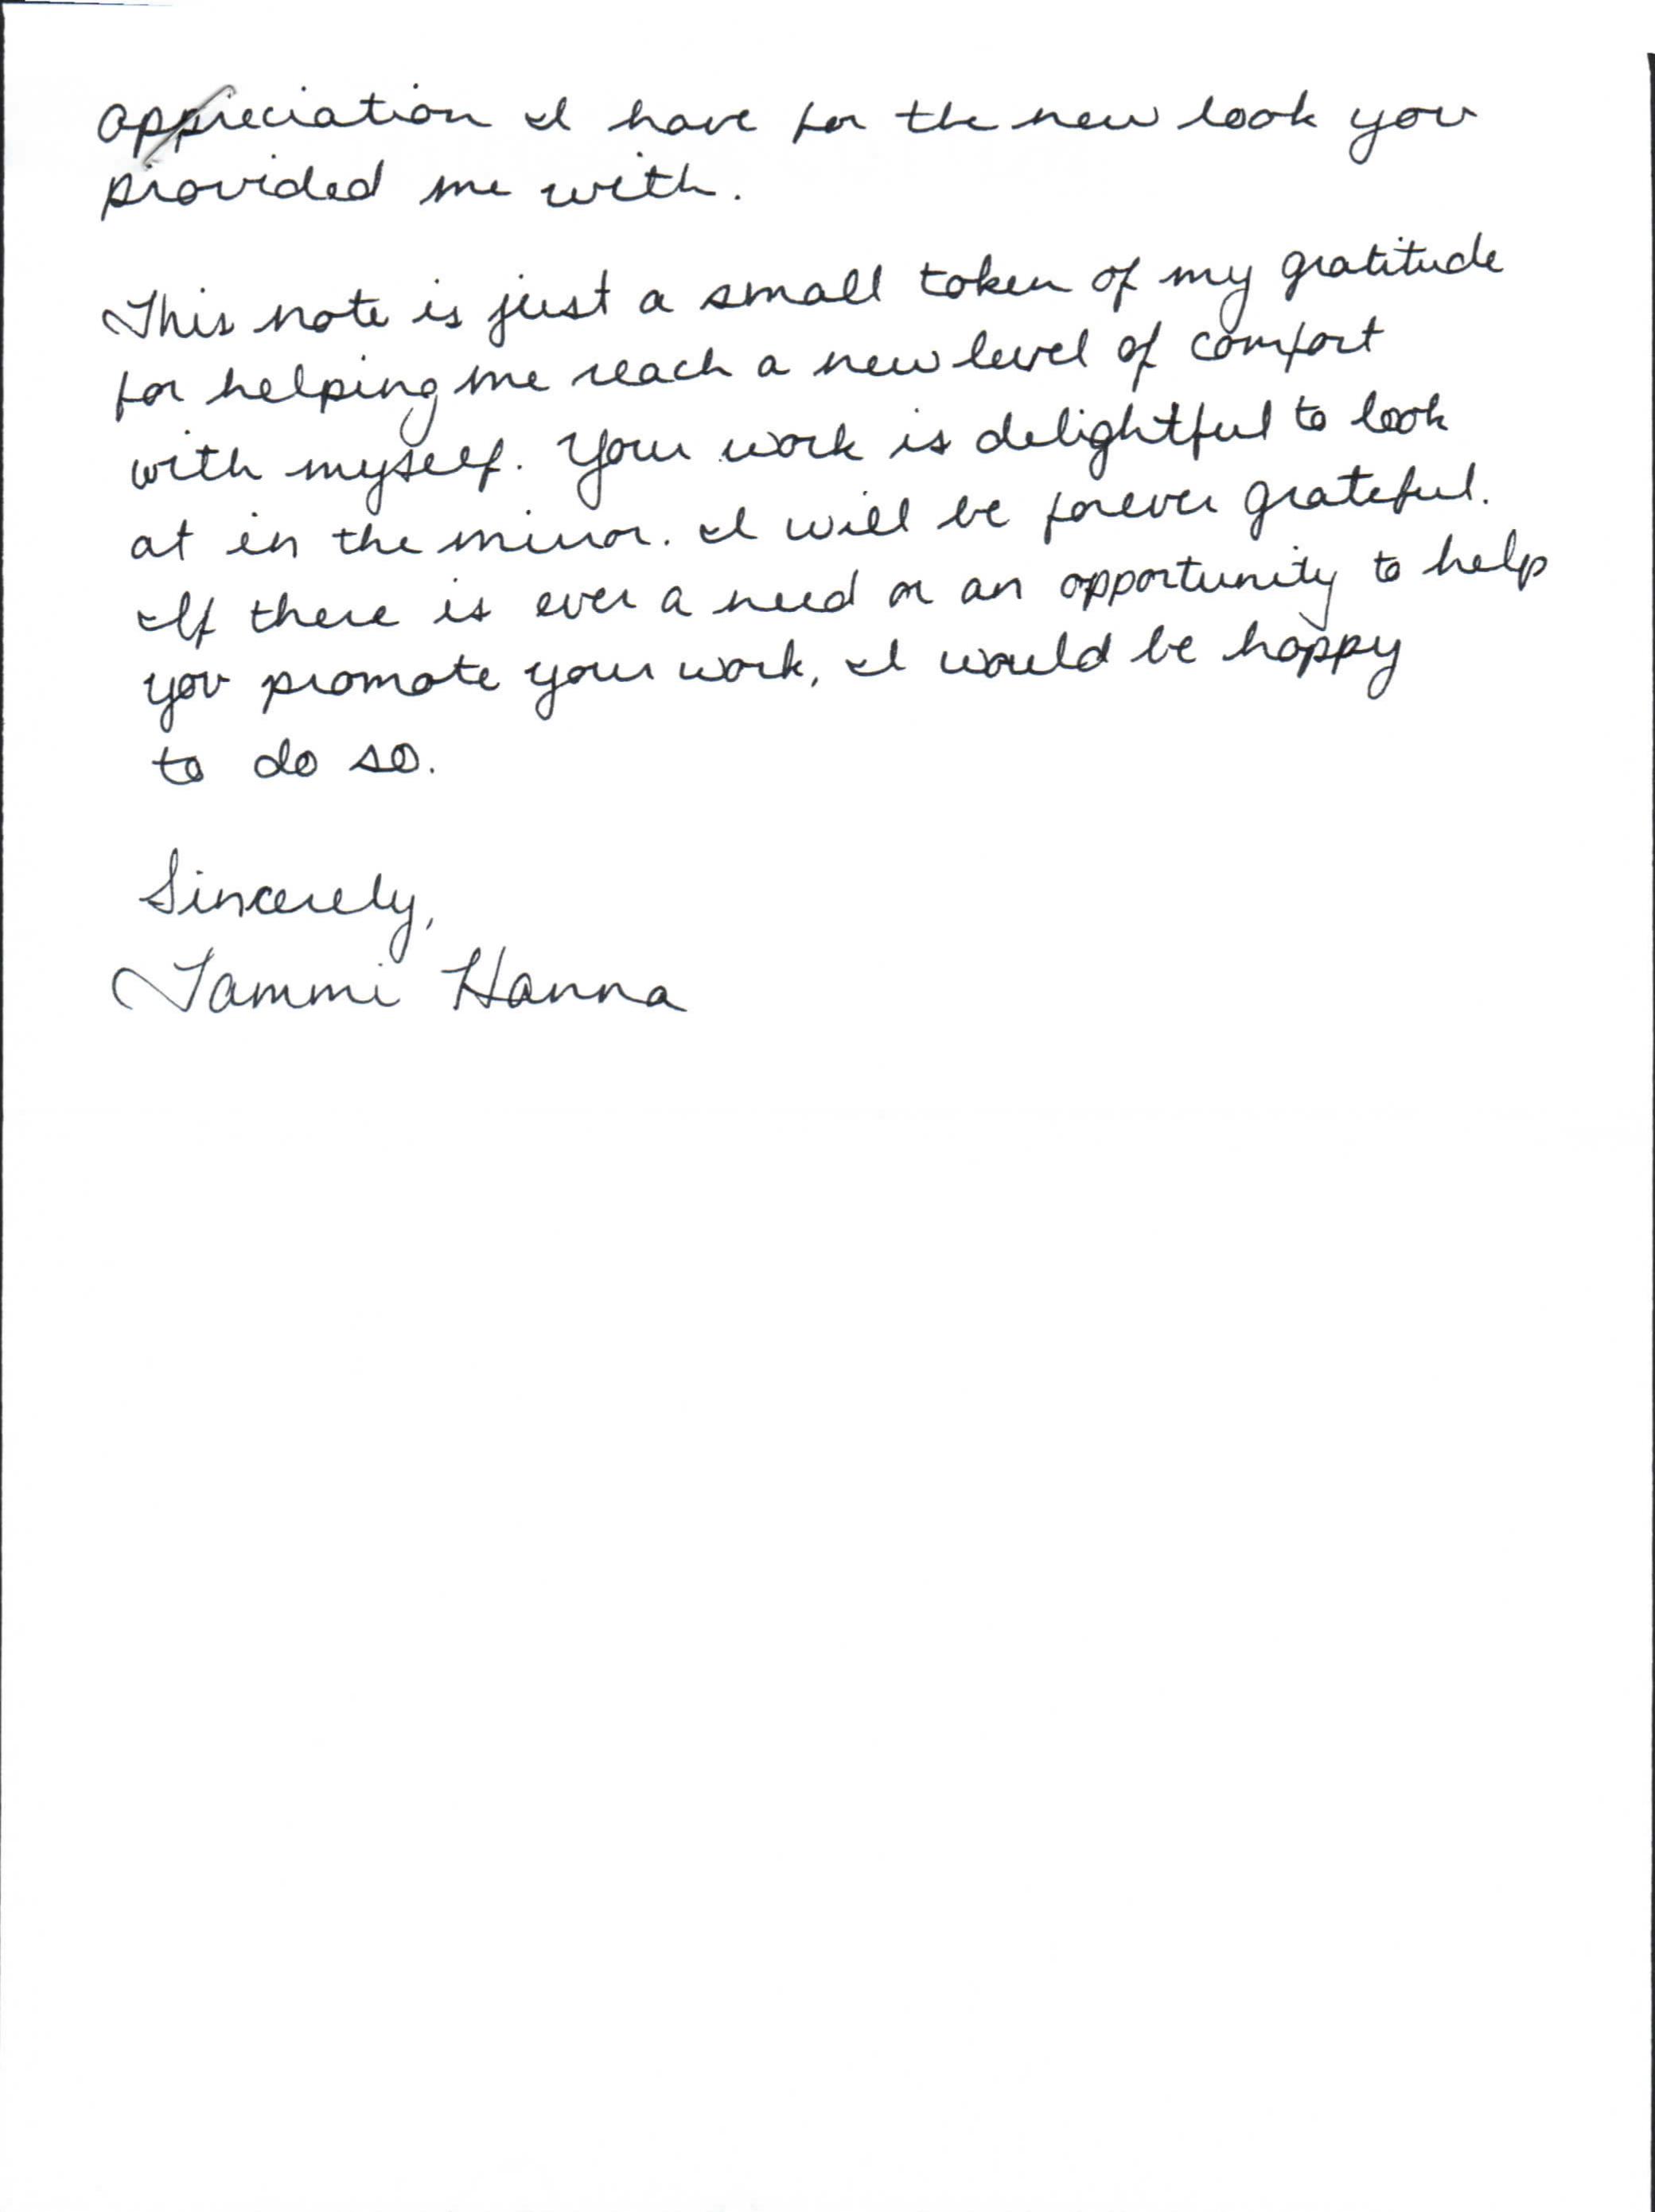 appreciation I have for the new look you
provided me with.
This note is just a small token of my gratitude
for helping me reach a new level of comfort
with myself. Your work is delightful to look
at in the mirror. I will be forever grateful.
If there is ever a need or an opportunity to help
you promote your work, I would be happy
to do so.
Sincerely,
Tammi Hanna